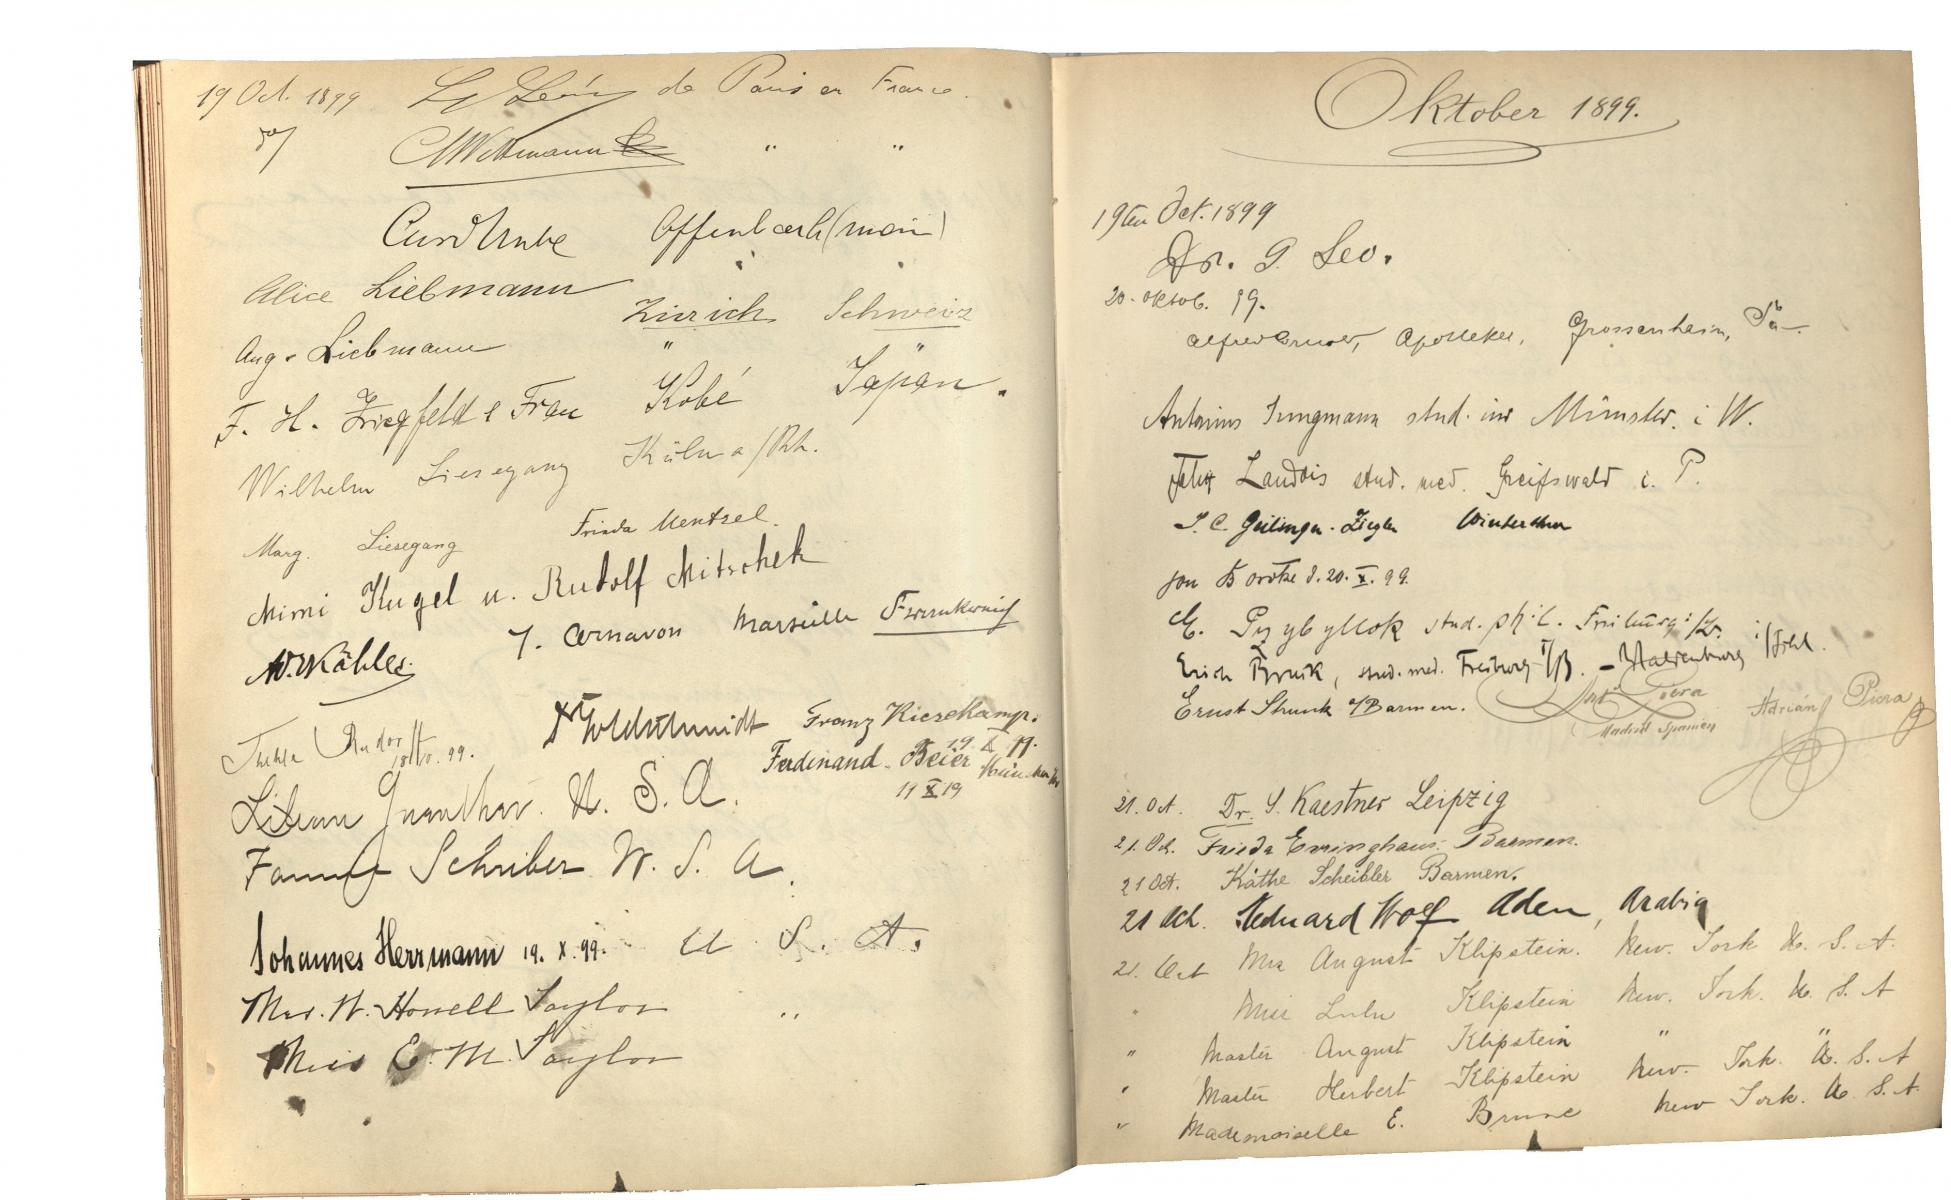 19 Oct. 1899 de Paris en France.
do/ " "
Offenbach (main)
Alice Liebmann Zürich Schweiz
Aug. Liebmann " "
F. H. Ziegfeld & Frau Kobé Japan.
Wilhelm Liesegang Köln a/Rh.
Marg. Liesegang Frieda Mentzel.
Mimi Kugel u. Rudolf Mitschek
W. Kähler J. Cernavon Marseille
Goldschmidt Franz Kiesekamp.
Thekla 99. Ferdinand Beier 19 X 99.
19 X 19
Lilian Guenther. U. S. A.
Schriber U. S. A.
Johannes Herrmann 19. X. 99. U. S. A.
Mrs. W. Howell Taylor "
Miss E. M. Taylor
Oktober 1899.
19ten Oct. 1899
Dr. G. Leo.
20. Oktob. 99.
Alfred Apotheker, Grossenhain, Sa.
Antonius Jungmann stud. iur Münster. i W.
Felix Landois stud. med. Greifswald i. P.
J. C. Geilinger-Ziegler Winterthur
d. 20. X. 99.
E. Przybyllok stud. phil. Freiburg i/B.
Erich Bruck, stud. med. Freiburg i/B. - Waldenburg i/Schl.
Ernst Strunk a/Barmen. Piera Adrián Piera
Madrid Spanien
21. Oct. Dr. S. Kaestner Leipzig
21. Oct. Frieda Erninghaus. Barmen.
21 Oct. Käthe Scheibler Barmen.
21 Och. Eduard Wolf Aden, Arabia
21. Oct Mrs August Klipstein. New. York U. S. A.
" Miss Lulu Klipstein New. York. U. S. A
" Master August Klipstein " "
" Master Herbert Klipstein New. York. U. S. A
" Mademoiselle E. Brune New York. U. S. A.